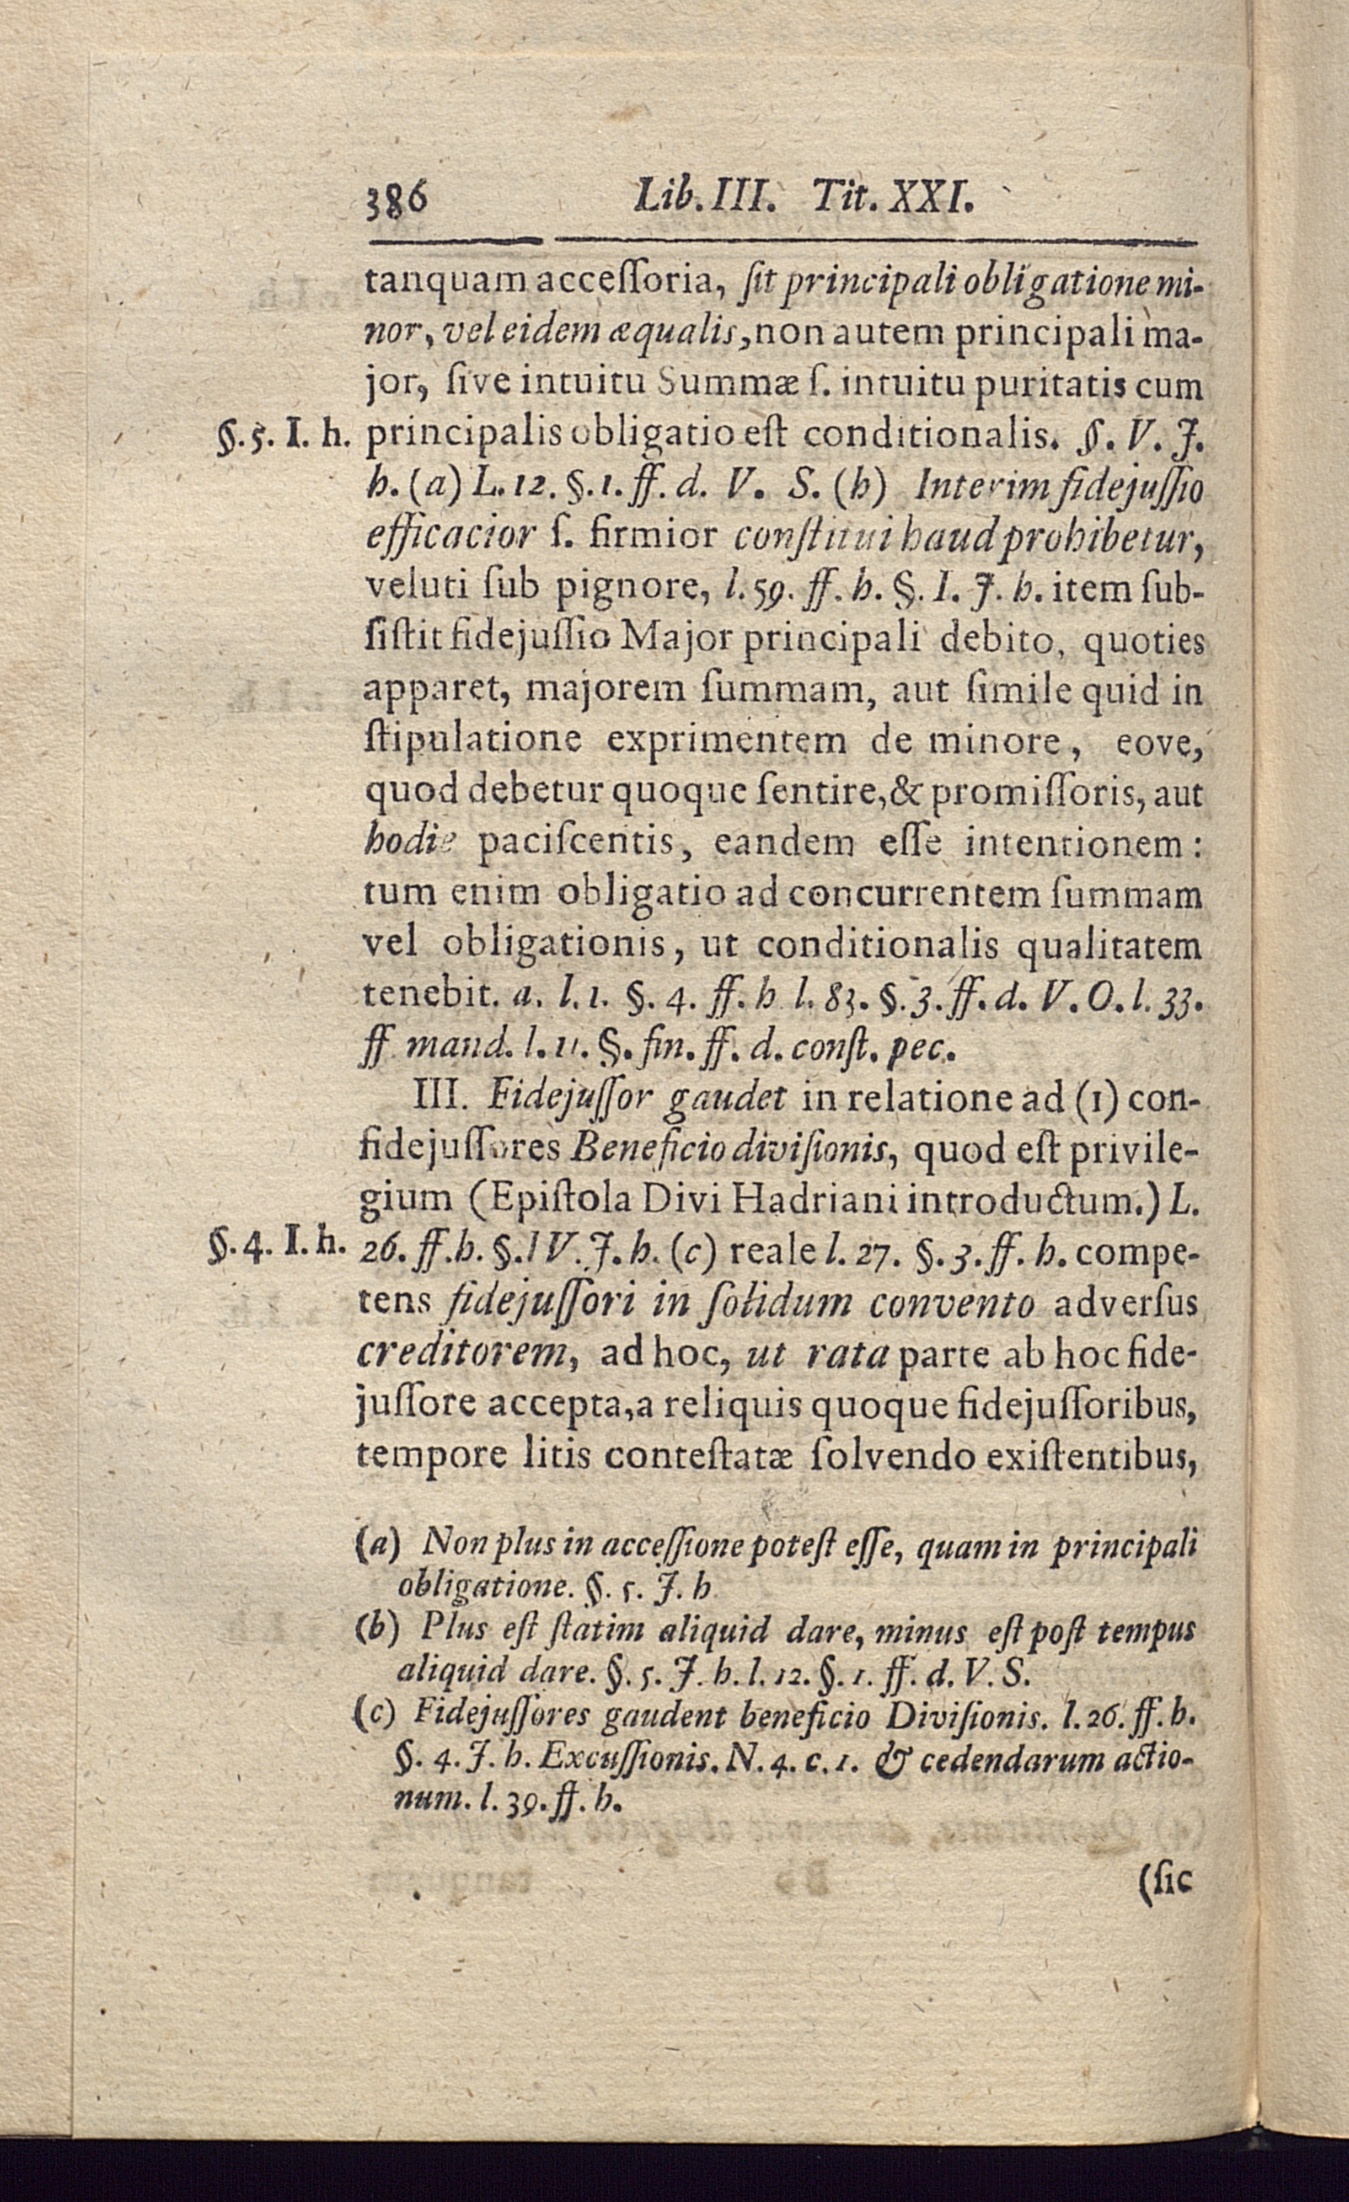 386 Lib. III. Tit. XXI.
tanquam acceſſoria, ſit principali obligatione mi-
nor, vel eidem æqualis, non autem principali ma-
jor, ſive intuitu Summæ ſ. intuitu puritatis cum
§. 5. I. h. principalis obligatio eſt conditionalis. §. V. J.
h. (a) L. 12. §. 1. ff. d. V. S. (b) Interim fidejuſſio
efficacior ſ. firmior conſtitui haud prohibetur,
veluti ſub pignore, l. 59. ff. h. §. I. J. h. item ſub-
ſiſtit fidejuſſio Major principali debito, quoties
apparet, majorem ſummam, aut ſimile quid in
ſtipulatione exprimentem de minore, eove,
quod debetur quoque ſentire, & promiſſoris, aut
hodie paciſcentis, eandem eſſe intentionem:
tum enim obligatio ad concurrentem ſummam
vel obligationis, ut conditionalis qualitatem
tenebit. a. l. 1. §. 4. ff. h l. 83. §. 3. ff. d. V. O. l. 33.
ff mand. l. 11. §. fin. ff. d. conſt. pec.
III. Fidejuſſor gaudet in relatione ad (1) con-
fidejuſſores Beneficio diviſionis, quod eſt privile-
gium (Epiſtola Divi Hadriani introductum.) L.
§. 4. I. h. 26. ff. h. §. IV. J. h. (c) reale l. 27. §. 3. ff. h. compe-
tens fidejuſſori in ſolidum convento adverſus
creditorem, ad hoc, ut rata parte ab hoc fide-
juſſore accepta, a reliquis quoque fidejuſſoribus,
tempore litis conteſtatæ ſolvendo exiſtentibus,
(a) Non plus in acceſſione poteſt eſſe, quam in principali
obligatione. §. 5. J. h
(b) Plus eſt ſtatim aliquid dare, minus eſt poſt tempus
aliquid dare. §. 5. J. h. l. 12. §. 1. ff. d. V. S.
(c) Fidejuſſores gaudent beneficio Diviſionis. l. 26. ff. h.
§. 4. J. h. Excuſſionis. N. 4. c. 1. & cedendarum actio-
num. l. 39. ff. h.
(ſic